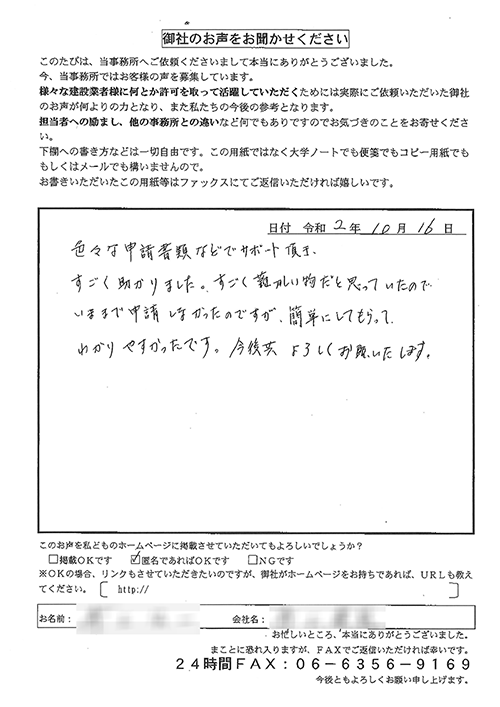 御社のお声をお聞かせください
このたびは、当事務所へご依頼くださいまして本当にありがとうございました。
今、当事務所ではお客様の声を募集しています。
様々な建設業者様に何とか許可を取って活躍していただくためには実際にご依頼いただいた御社
のお声が何よりの力となり、また私たちの今後の参考となります。
担当者への励まし、他の事務所との違いなど何でもありですのでお気づきのことをお寄せくださ
い。
下欄への書き方などは一切自由です。この用紙ではなく大学ノートでも便箋でもコピー用紙でも
もしくはメールでも構いませんので。
お書きいただいたこの用紙等はファックスにてご返信いただければ嬉しいです。
日付 令和 2年 10月 16日
色々な申請書類などでサポート頂き、
すごく助かりました。すごく難かしい物だと思っていたので
いままで申請しなかったのですが、簡単にしてもらって、
わかりやすかったです。今後共 よろしくお願いいたします。
このお声を私どものホームページに掲載させていただいてもよろしいでしょうか？
□掲載OKです ☑匿名であればOKです □NGです
※OKの場合、リンクもさせていただきたいのですが、御社がホームページをお持ちであれば、URLも教え
てください。〔 http:// 〕
お名前： 会社名：
お忙しいところ、本当にありがとうございました。
まことに恐れ入りますが、FAXでご返信いただければ幸いです。
24時間FAX：06-6356-9169
今後ともよろしくお願い申し上げます。